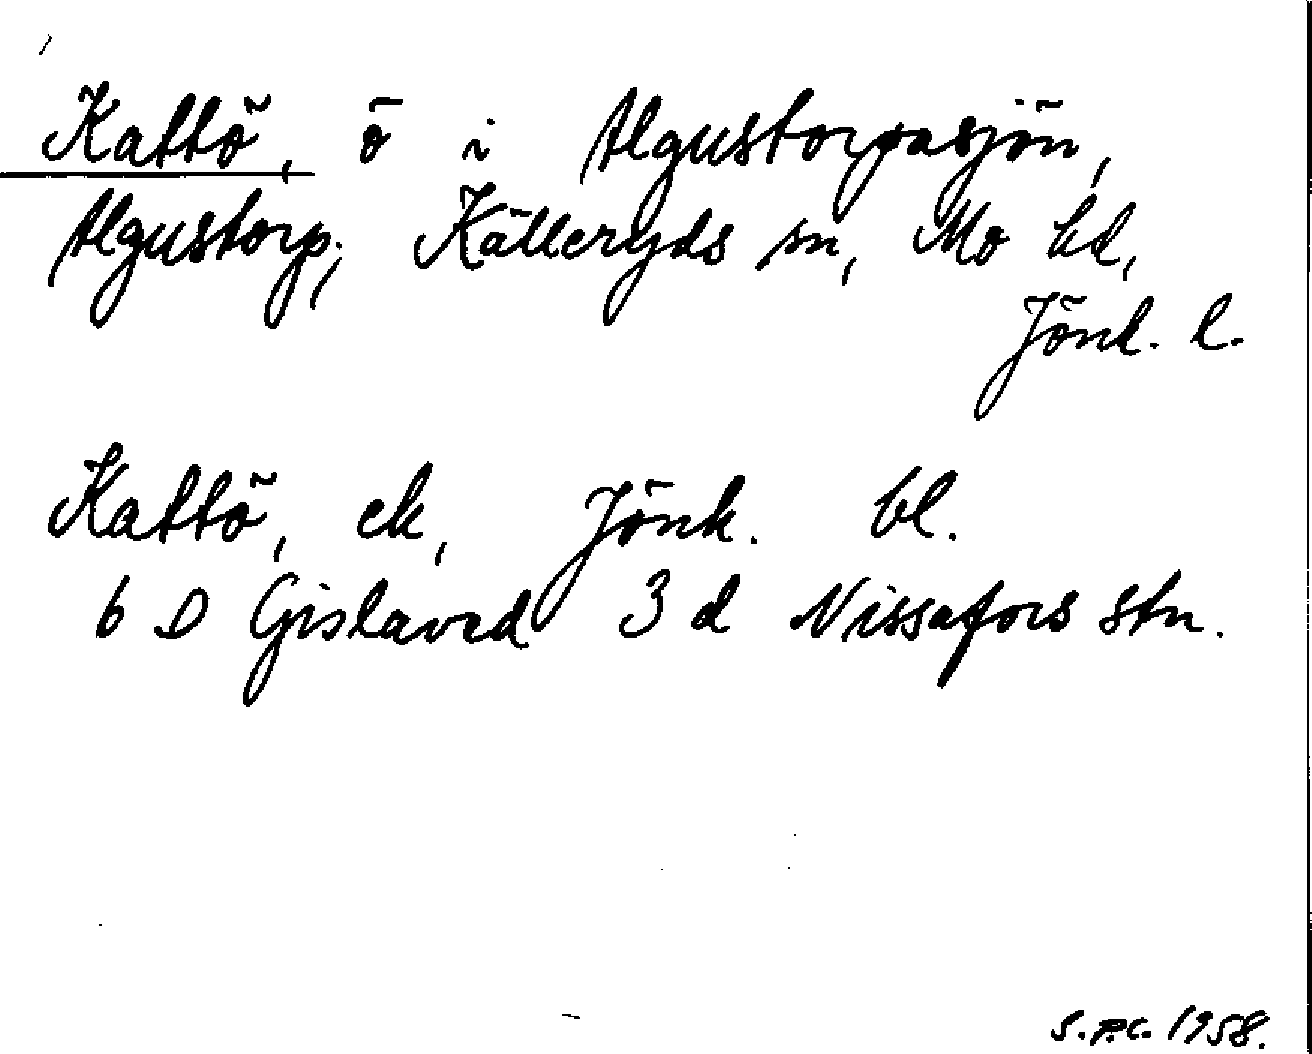 Kattö, ö i Algustorpasjön,
Algustorp, Källeryds sn, Mo hd,
Jönk. l.
Kattö, ek, Jönk. bl.
6 D Gislaved 3 d Nissafors stn.
S.P.C. 1958.